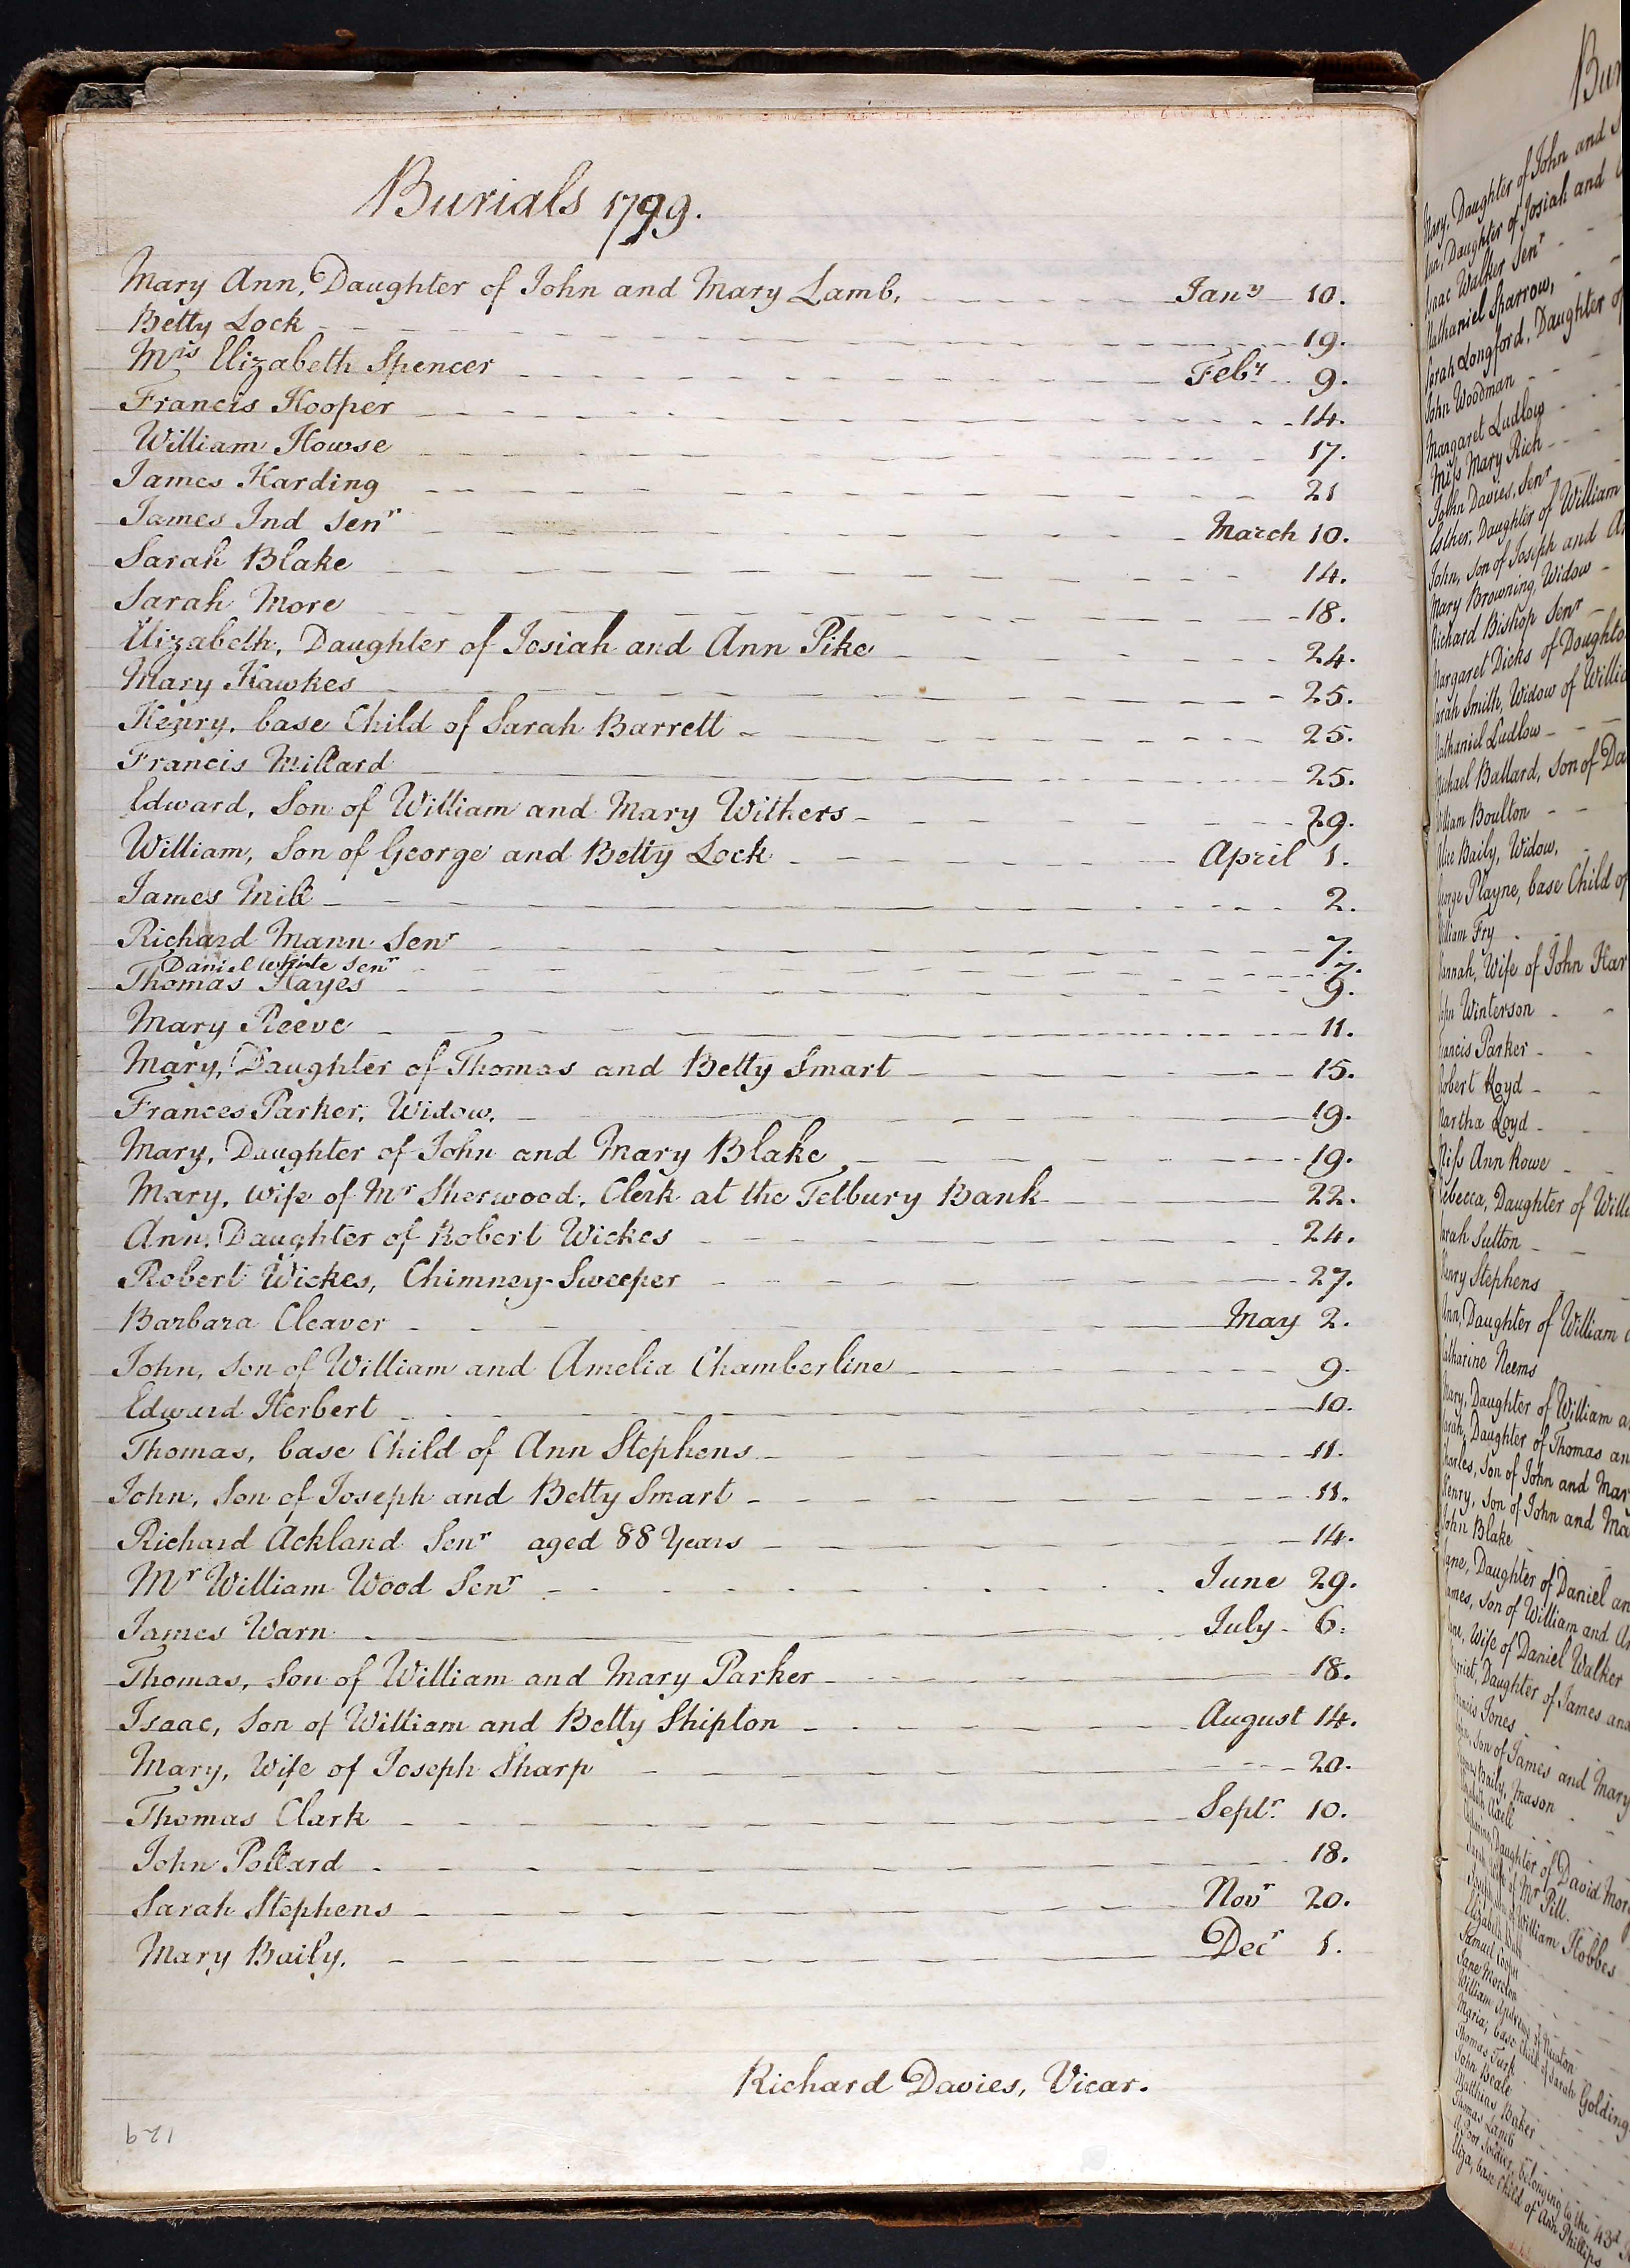 Burials 1799.
Mary Ann, Daughter of John and Mary Lamb, Jany 10.
Betty Lock 19.
Mrs Elizabeth Spencer Feby 9.
Francis Hooper 14.
William Howse 17.
James Harding 21
James Ind Senr March 10.
Sarah Blake 14.
Sarah More 18.
Elizabeth, Daughter of Josiah and Ann Pike 24.
Mary Hawkes 25.
Henry, base Child of Sarah Barrett 25.
Francis Millard 25.
Edward, Son of William and Mary Withers 29.
William, Son of George and Betty Lock April 1.
James Mill 2.
Richard Mann Senr 7.
Daniel White Senr 7.
Thomas Hayes 9.
Mary Reeve 11.
Mary, Daughter of Thomas and Betty Smart 15.
Frances Parker, Widow. 19.
Mary, Daughter of John and Mary Blake 19.
Mary, wife of Mr Sherwood, Clerk at the Tetbury Bank 22.
Ann, Daughter of Robert Wickes 24.
Robert Wickes, Chimney-Sweeper 27.
Barbara Cleaver May 2.
John, Son of William and Amelia Chamberline 9.
Edward Herbert 10.
Thomas, base Child of Ann Stephens 11.
John, Son of Joseph and Betty Smart 11.
Richard Ackland Senr aged 88 Years 14.
Mr William Wood Senr June 29.
James Warn July 6.
Thomas, Son of William and Mary Parker 18.
Isaac, Son of William and Betty Shipton August 14.
Mary, Wife of Joseph Sharp 20.
Thomas Clark Septr 10.
John Pollard 18.
Sarah Stephens Novr 20.
Mary Baily. Decr 1.
Richard Davies, Vicar.
129
Bur
Mary, Daughter of John and
Ann, Daughter of Josiah and
Isaac Walker Senr
Nathaniel Sparrow,
Sarah Longford, Daughter of
John Woodman
Margaret Ludlow
Miss Mary Rich
John Davies, Senr
Esther, Daughter of William
John, Son of Joseph and
Mary Browning, Widow
Richard Bishop Senr
Margaret Dicks of Doughto
Sarah Smith, Widow of Willia
Nathaniel Ludlow
Michael Ballard, Son of Da
William Boulton
Alice Baily, Widow,
George Playne, base Child of
William Fry
Hannah, Wife of John Har
John Winterson
Francis Parker
Robert Loyd
Martha Loyd
Miss Ann Rowe
Rebecca, Daughter of Willi
Sarah Sutton
Henry Stephens
Ann, Daughter of William
Catharine Neems
Mary, Daughter of William a
Sarah, Daughter of Thomas an
Charles, Son of John and Mar
Henry, Son of John and Ma
John Blake
Jane, Daughter of Daniel an
James, Son of William and
Jane, Wife of Daniel Walker
Harriet, Daughter of James and
Francis Jones
Son of James and Mary
Baily, Mason
Elizabeth
Catharine, Daughter of David
Sarah, Wife of Mr Pill.
Joseph, Son of William Hobbes
Elizabeth
Samuel Cooper
Jane Moreton
William Andrews of
Maria, base Child of Sarah Golding
Thomas Turk
John Beale
Matthias Baker
Thomas Lamb
A Poor Soldier, belonging to the 43d
Eliza, base Child of Ann Phillips